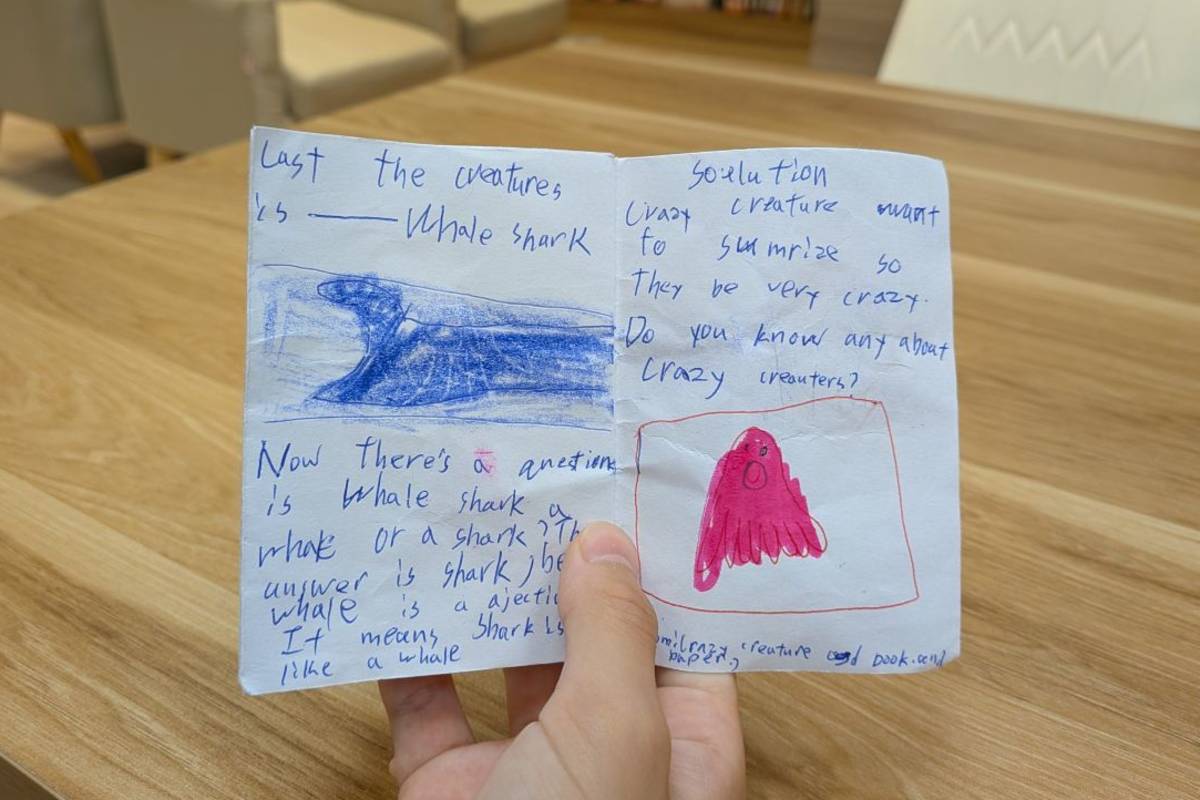 Last the creatures
is — Whale shark
Now there's a questions
is Whale shark a
whale or a shark? Th
answer is shark, be
whale is a ajecti
It means shark is
like a whale
Soulution
Crazy creature want
to sumrize so
They be very crazy.
Do you know any about
crazy creauters?
creature book. and
paper,